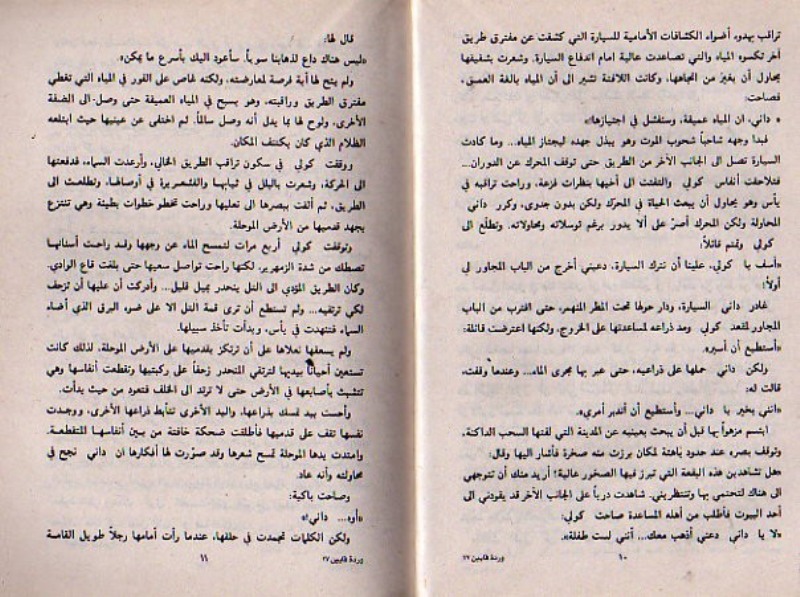 تراقب بهدوء أضواء الكشافات الأمامية للسيارة التي كشفت عن مفترق طريق
آخر تكسوه المياه والتي تصاعدت عالية امام اندفاع السيارة. وشعرت بشقيقها
يحاول أن يغيّر من اتجاهها. وكانت اللافتة تشير الى أن المياه بالغة العمق،
فصاحت:
« داني، ان المياه عميقة، وستفشل في اجتيازها!»
فبدا وجهه شاحباً شحوب الموت وهو يبذل جهده ليجتاز المياه... وما كادت
السيارة تصل الى الجانب الآخر من الطريق حتى توقف المحرك عن الدوران...
فتلاحقت أنفاس كولي والتفتت الى أخيها بنظرات فزعة، وراحت تراقبه في
يأس وهو يحاول أن يبعث الحياة في المحرك ولكن بدون جدوى، وكرر داني
المحاولة ولكن المحرك أصرّ على ألا يدور برغم توسلاته ومحاولاته. وتطلّع الى
كولي وتمتم قائلاً:
«آسف يا كولي، علينا أن نترك السيارة، دعيني أخرج من الباب المجاور لي
أولاً!»
غادر داني السيارة، ودار حولها تحت المطر المنهمر، حتى اقترب من الباب
المجاور لمقعد كولي ومد ذراعه لمساعدتها على الخروج، ولكنها اعترضت قائلة:
«أستطيع أن أسير».
ولكن داني حملها على ذراعيه، حتى عبر بها مجرى الماء... وعندما وقفت،
قالت له:
«انني بخير يا داني... وأستطيع أن أتدبر أمري».
ابتسم مزهواً بها قبل أن يبحث بعينيه عن المدينة التي لفتها السحب الداكنة،
وتوقف بصره عند حدود باهتة لمكان برزت منه صخرة فأشار اليها وقال:
«هل تشاهدين هذه البقعة التي تبرز فيها الصخور عالية؟ أريد منك أن تتوجهي
الى هناك لتحتمي بها وتنتظريني. شاهدت درباً على الجانب الآخر قد يقودني الى
أحد البيوت فأطلب من أهله المساعدة صاحت كولي:
«لا يا داني دعني أذهب معك... أنني لست طفلة».
١٠
وردة قايين ٢٧
قال لها:
«ليس هناك داع لذهابنا سوياً. سأعود اليك بأسرع ما يمكن».
ولم يتح لها أية فرصة لمعارضته، ولكنه غاص على الفور في المياه التي تغطي
مفترق الطريق وراقبته، وهو يسبح في المياه العميقة حتى وصل الى الضفة
الأخرى، ولوح لها بما يدل أنه وصل سالماً. ثم اختفى عن عينيها حيث ابتلعه
الظلام الذي كان يكتنف المكان.
ووقفت كولي في سكون تراقب الطريق الخالي، وأرعدت السماء، فدفعتها
الى الحركة، وشعرت بالبلل في ثيابها والقشعريرة في أوصالها، وتطلعت الى
الطريق، ثم ألقت ببصرها الى نعليها وراحت تخطو خطوات بطيئة وهي تنتزع
بجهد قدميها من الأرض الموحلة.
وتوقفت كولي أربع مرات لتمسح الماء عن وجهها وقد راحت أسنانها
تصطك من شدة الزمهرير، لكنها راحت تواصل سعيها حتى بلغت قاع الوادي.
وكان الطريق المؤدي الى التل ينحدر بميل قليل... وأدركت أن عليها أن تزحف
لكي ترتقيه... ولم تستطع أن ترى قمة التل الا على ضوء البرق الذي أضاء
السماء فتنهدت في يأس، وبدأت تأخذ سبيلها.
ولم يسعفها نعلاها على أن ترتكز بقدميها على الأرض الموحلة، لذلك كانت
تستعين أحياناً بيديها لترتقي المنحدر زحفاً على ركبتيها وتقطعت أنفاسها وهي
تتشبث بأصابعها في الأرض حتى لا ترتد الى الخلف فتعود من حيث بدأت.
وأحست بيد تمسك بذراعها، واليد الأخرى تتأبط ذراعها الأخرى، ووجدت
نفسها تقف على قدميها فأطلقت ضحكة خافتة من بين أنفاسها المتقطعة.
وامتدت يدها الموحلة تمسح شعرها وقد صوّرت لها أفكارها ان داني نجح في
محاولته وأنه عاد.
وصاحت باكية:
«أوه... داني!»
ولكن الكلمات تجمدت في حلقها، عندما رأت أمامها رجلاً طويل القامة
١١
وردة قايين ٢٧